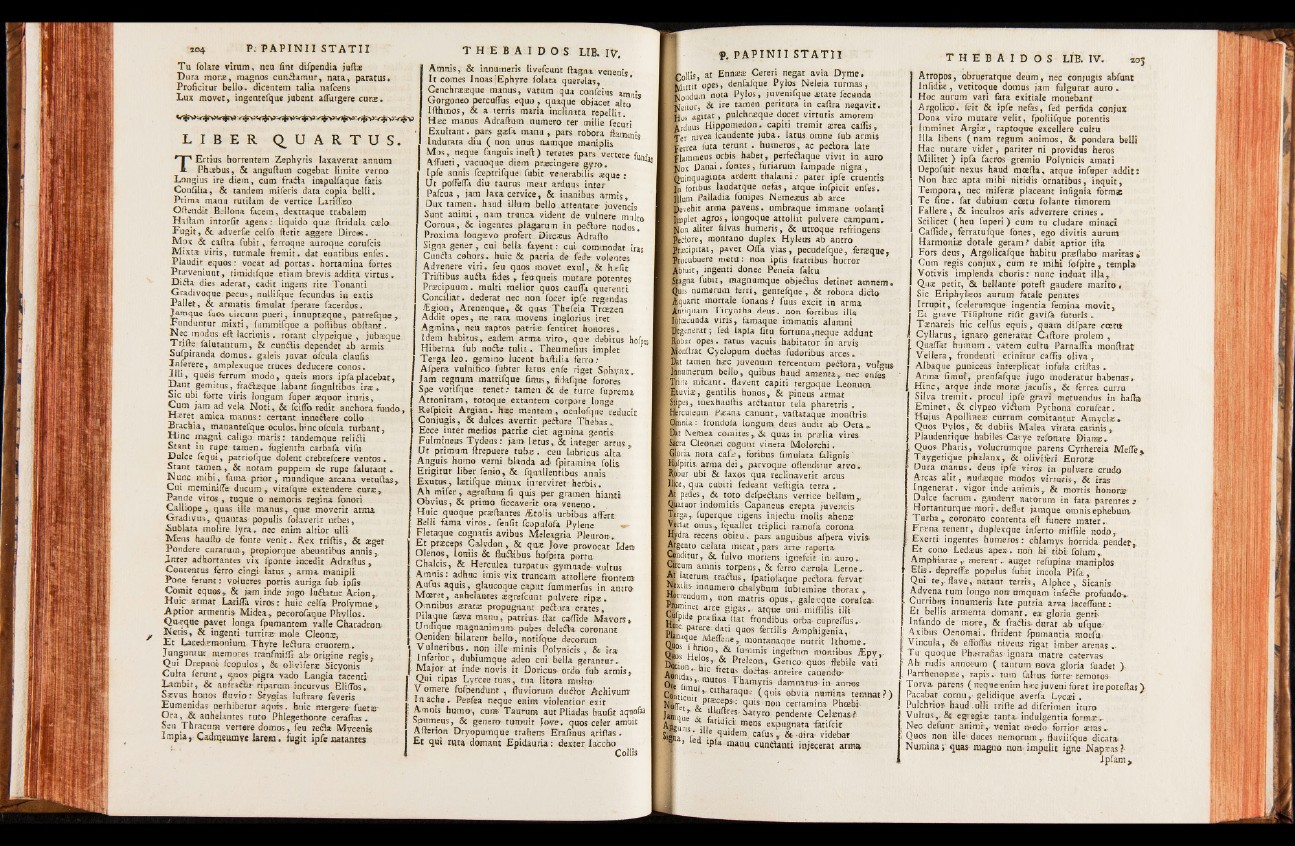 204 P. PAPINII STATII
Tu solare virum, neu sint dispendia justæ
Dura moræ, magnos cunctamur, nata, paratus.
Proficitur bello. dicentem talia nascens
Lux movet, ingentesque jubent assurgere curæ.
LIBER QUARTUS.
TErtius horrentem Zephyris laxaverat annum
Phœbus, & angustum cogebat limite verno
Longius ire diem, cum fracta impulsaque fatis
Consilia, & tandem miseris data copia belli.
Prima manu rutilam de vertice Larissæo
Ostendit Bellona facem, dextraque trabalem
Hastam intorsit agens: liquido quæ stridula cælo
Fugit, & adversæ celso stetit aggere Dirces.
Mox & castra subit, ferroque auroque coruscis
Mixta viris, turmale fremit. dat euntibus enses.
Plaudit equos: vocat ad portas. hortamina fortes
Præveniunt, timidisque etiam brevis addita virtus.
Dicta dies aderat, cadit ingens rite Tonanti
Gradivoque pecus, nullisque secundus in extis
Pallet, & armatis simulat sperare sacerdos.
Jamque suos circum pueri, innuptæque, patresque,
Funduntur mixti, summisque a postibus obstant.
Nec modus est lacrimis. rorant clypeique, jubæque
Triste salutantum, & cunctis dependet ab armis
Suspiranda domus. galeis juvat oscula clausis
Inserere, amplexuque truces deducere conos.
Illi, queis ferrum modo, queis mors ipsa placebat,
Dant gemitus, fractæque labant singultibus iræ.
Sic ubi forte viris longum super æquor ituris,
Cum jam ad vela Noti, & scisso redit anchora fundo,
Hæret amica manus: certant innectere collo
Brachia, manantesque oculos hinc oscula turbant,
Hinc magni caligo maris: tandemque relicti
Stant in rupe tamen. fugientia carbasa visu
Dulce sequi, patriosque dolent crebrescere ventos.
Stant tamen, & notam puppem de rupe salutant.
Nunc mihi, fama prior, mundique arcana vetustas,
Cui meminisse ducum, vitasque extendere curæ,
Pande viros, tuque o nemoris regina sonori
Calliope, quas ille manus, quæ moverit arma
Gradivus, quantas populis solaverit urbes,
Sublata molire lyra. nec enim altior ulli
Mens hausto de fonte venit. Rex tristis, & æger
Pondere curarum, propiorque abeuntibus annis,
Inter adhortantes vix sponte incedit Adrastus,
Contentus ferro cingi latus, arma manipli
Pone ferunt: volucres portis auriga sub ipsis
Comit equos. & jam inde jugo luctatur Arion,
Huic armat Larissa viros: huic celsa Prosymne,
Aptior armentis Midea, pecorosaque Phyllos.
Quæque pavet longa spumantem valle Charadron
Neris, & ingenti turritæ mole Cleonæ,
Et Lacedæmonium Thyre lectura cruorem.
Junguntur memores transmissi ab origine regis,
Qui Drepani scopulos, & oliviferæ Sicyonis
Culta ferunt, quos pigra vado Langia tacenti
Lambit, & anfractu riparum incurvus Elissos.
Sævus honos fluvio: Stygias lustrare severis
Eumenidas perhibetur aquis. huic mergere suetæ
Ora, & anhelantes tuto Phlegethonte cerastas.
Seu Thracum vertere domos, seu tecta Mycenis
Impia, Cadmeumve larem. fugit ipse natantes
THEBAIDOS LIB. IV.
Amnis, & innumeris livescunt stagna venenis.
It comes Inoas Ephyre solata querelas,
Cenchreæque manus, vatum qua conscius amnis
Gorgoneo percussus equo, quaque objacet alto
Isthmos, & a terris maria inclinata repellit.
Hæc manus Adrastum numero ter mille securi
Exultant. pars gæsa manu, pars robora flammis
Indurata diu (non unus namque maniplis
Mos, neque sanguis inest) teretes pars vertere fundas
Assueti, vacuoque diem præcingere gyro.
Ipse annis sceptrisque subit venerabilis æque:
Ut possessa diu taurus meat arduus inter
Pascua, jam laxa cervice, & inanibus armis,
Dux tamen. haud illum bello attentare juvencis
Sunt animi, nam trunca vident de vulnere multo
Cornua, & ingentes plagarum in pectore nodos.
Proxima longævo profert Dircæus Adrasto
Signa gener, cui bella favent: cui commodat iras
Cuncta cohors. huic & patria de sede volentes
Advenere viri. seu quos movet exul, & hæsit
Tristibus aucta fides, seu queis mutare potentes
Præcipuum. multi melior quos causa querenti
Conciliat. dederat nec non socer ipse regendas
Ægion, Arenenque, & quas Theseia Trœzen
Addit opes, ne rara movens inglorius iret
Agmina, neu raptos patriæ sentiret honores.
Idem habitus, eadem arma viro, quæ debitus hospes
Hiberna sub nocte tulit. Theumesius implet
Terga leo. gemino lucent hastilia ferro:
Aspera vulnifico subter latus ense riget Sphynx.
Jam regnum matrisque sinus, fidasque sorores
Spe votisque tenet: tamen & de turre suprema
Attonitam, totoque extantem corpore longe
Respicit Argian. hæc mentem, oculosque reducit
Conjugis, & dulces avertit pectore Thebas.
Ecce inter medios patriæ ciet agmina gentis
Fulmineus Tydeus: jam lætus, & integer artus,
Ut primum strepuere tubæ. ceu lubricus alta
Anguis humo verni blanda ad spiramina solis
Erigitur liber senio, & squallentibus annis
Exutus, lætisque minax interviret herbis.
Ah miser, agrestum si quis per gramen hianti
Obvius, & primo siccaverit ora veneno.
Huic quoque præstantes Ætolis urbibus affert
Belli fama viros. sensit scopulosa Pylene
Fletaque cognatis avibus Meleagria Pleuron.
Et præceps Calydon, & quæ Jove provocat Iden
Olenos, Ioniis & fluctibus hospita portu
Chalcis, & Herculea turpatus gymnade vultus
Amnis: adhuc imis vix truncam attollere frontem
Ausus aquis, glaucoque caput summersus in antro
Mœret, anhelantes ægrescunt pulvere ripæ.
Omnibus æratæ propugnant pectora crates,
Pilaque sæva manu, patrius stat casside Mavors,
Undique magnanimum pubes delecta coronant
Oeniden hilarem bello, notisque decorum
Vulneribus. non ille minis Polynicis, & ira
Inferior, dubiumque adeo cui bella gerantur.
Major at inde novis it Doricus ordo sub armis,
Qui ripas Lyrcee tuas, tua litora multo
Vomere suspendunt, fluviorum ductor Achivum
Inache. Persea neque enim violentior exit
Amnis humo, cum Taurum aut Pliadas hausit aquosas
Spumeus, & genero tumuit Jove. quos celer ambit
Asterion Dryopumque trahens Erasinus aristas.
Et qui rura domant Epidauria: dexter Iaccho
Collis
P. PAPINII STATII
Collis, at Ennææ Cereri negat avia Dyme.
Mittit opes, densasque Pylos Neleia turmas,
Nondum nota Pylos, juvenisque ætate secunda
Nestor, & ire tamen peritura in castra negavit.
Hos agitat, pulchræque docet virtutis amorem
Arduus Hippomedon. capiti tremit ærea cassis,
Ter nivea scandente juba. latus omne sub armis
Ferrea suta terunt. humeros, ac pectora late
Flammeus orbis habet, perfectaque vivit in auro
Nox Danai. sontes, furiarum lampade nigra,
Quinquaginta ardent thalami: pater ipse cruentis
In foribus laudatque nefas, atque inspicit enses.
Illum Palladia sonipes Nemeæus ab arce
Devehit arma pavens. umbraque immane volanti
Implet agros, longoque attollit pulvere campum.
Non aliter silvas humeris, & utroque refringens
Pectore, montano duplex Hyleus ab antro
Præcipitat, pavet Ossa vias, pecudesque, feræque,
Procubuere metu: non ipsis fratribus horror
Abfuit, ingenti donec Peneia saltu
Stagna subit, magnumque objectus detinet amnem.
Quis numerum ferri, gentesque, & robora dicto
Æquarit mortale sonans? suus excit in arma
Antiquam Tiryntha deus. non fortibus illa
Infœcunda viris, famaque immanis alumni
Degenerat; sed lapsa situ fortuna, neque addunt
Robur opes. rarus vacuis habitator in arvis
Monstrat Cyclopum ductas sudoribus arces.
Dat tamen hæc juvenum tercentum pectora, vulgus
Innumerum bello, quibus haud amenta, nec enses
Triste micant. flavent capiti tergoque Leonum
Exuviæ, gentilis honos, & pineus armat
Stipes, inexhaustis arctantur tela pharetris.
Herculeum Pæana canunt, vastataque monstris
Omnia: frondosa longum deus audit ab Oeta.
Dat Nemea comites, & quas in prœlia vires
Sacra Cleonæi cogunt vineta Molorchi.
Gloria nota casæ, foribus simulata salignis
Hospitis arma dei, parvoque ostenditur arvo.
Robur ubi & laxos qua reclinaverit arcus
Ilice, qua cubiti sedeant vestigia terra.
At pedes, & toto despectans vertice bellum,
Quatuor indomitis Capaneus erepta juvencis
Terga, superque rigens injectu molis ahenæ
Versat onus, squallet triplici ramosa corona
Hydra recens obitu. pars anguibus aspera vivis
Argento cælata micat, pars arte reperta
Conditur, & fulvo moriens ignescit in auro.
Circum amnis torpens, & ferro cærula Lerne.
At laterum tractus, spatiosaque pectora servat
Nexilis innumero chalybum subtemine thorax,
Horrendum, non matris opus, galeæque coruscæ
Prominet arce gigas. atque uni missilis illi
Cuspide præfixa stat frondibus orba cupressus.
Huic parere dati quos fertilis Amphigenia,
Planaque Messene, montanaque nutrit Ithome.
Quos Thrion, & summis ingestum montibus Æpy,
Quos Helos, & Pteleon, Getico quos flebile vati
Dorion. hic fretus doctas anteire canendo
Aonidas, mutos Thamyris damnatus in annos
Ore simul, citharaque (quis obvia numina temnat?)
Conticuit præceps: quis non certamina Phœbi
Nosset, & illustres Satyro pendente Celænas?
Jamque & fatidici mens expugnata fatiscit
Auguris. ille quidem casus, & dira videbat
Signa, sed ipsa manu cunctanti injecerat arma
THEBAIDOS LIB. IV. 205
Atropos, obrueratque deum, nec conjugis absunt
Insidiæ, vetitoque domus jam fulgurat auro.
Hoc aurum vati fata exitiale monebant
Argolico. scit & ipse nefas, sed perfida conjux
Dona viro mutare velit, spoliisque potentis
Imminet Argiæ, raptoque excellere cultu
Illa libens (nam regum animos, & pondera belli
Hac nutare videt, pariter ni providus heros
Militet) ipsa sacros gremio Polynicis amati
Deposuit nexus haud mœsta, atque insuper addit:
Non hæc apta mihi nitidis ornatibus, inquit,
Tempora, nec miseræ placeant insignia formæ
Te sine. sat dubium cœtu solante timorem
Fallere, & incultos aris advertere crines.
Scilicet (heu superi) cum tu cludare minaci
Casside, ferratusque sones, ego divitis aurum
Harmoniæ dotale geram? dabit aptior ista
Fors deus, Argolicasque habitu præstabo maritas.
Cum regis conjux, cum te mihi sospite, templa
Votivis implenda choris: nunc induat illa,
Quæ petit, & bellante potest gaudere marito.
Sic Eriphylæos aurum fatale penates
Irrupit, scelerumque ingentia semina movit,
Et grave Tisiphone risit gavisa futuris.
Tænareis hic celsus equis, quam dispare cœtu
Cyllarus, ignaro generarat Castore prolem,
Quassat humum. vatem cultu Parnassia monstrat
Vellera, frondenti crinitur cassis oliva,
Albaque puniceas interplicat infula cristas.
Arma simul, prensasque jugo moderatur habenas.
Hinc, atque inde moræ jaculis, & ferrea curru
Silva tremit. procul ipse gravi metuendus in hasta
Eminet, & clypeo victum Pythona coruscat.
Hujus Apollineæ currum comitantur Amyclæ.
Quos Pylos, & dubiis Malea vitata carinis,
Plaudentique habiles Caryæ resonare Dianæ.
Quos Pharis, volucrumque parens Cythereia Messe,
Taygetique phalanx, & oliviferi Eurotæ
Dura manus. deus ipse viros in pulvere crudo
Arcas alit, nudæque modos virtutis, & iras
Ingenerat. vigor inde animis, & mortis honoræ
Dulce sacrum. gaudent natorum in fata parentes:
Hortanturque mori. deflet jamque omnis ephebum
Turba, coronato contenta est funere mater.
Exerti ingentes humeros: chlamys horrida pendet,
Et cono Ledæus apex. non hi tibi solum,
Amphiaraë, merent. auget resupina maniplos
Elis. depressæ populus subit incola Pisæ,
Qui te, flave, natant terris, Alphee, Sicanis
Advena tum longo non umquam infecte profundo.
Curribus innumeris late putria arva lacessunt:
Et bellis armenta domant. ea gloria genti
Infando de more, & fractis durat ab usque
Axibus Oenomai. strident spumantia morsu
Vincula, & effossas niveus rigat imber arenas.
Tu quoque Phærasias ignara matre catervas
Ah rudis annorum (tantum nova gloria suadet)
Parthenopææ, rapis. tum saltus forte remotos
Torva parens (neque enim hæc juveni foret ire potestas)
Pacabat cornu, gelidique aversa Lycæi.
Pulchrior haud ulli triste ad discrimen ituro
Vultus, & egregiæ tanta indulgentia formæ.
Nec desunt animi, veniat modo fortior ætas.
Quos non ille duces nemorum, fluviisque dicata
Numina, quas magno non impulit igne Napæas?
Ipsam,